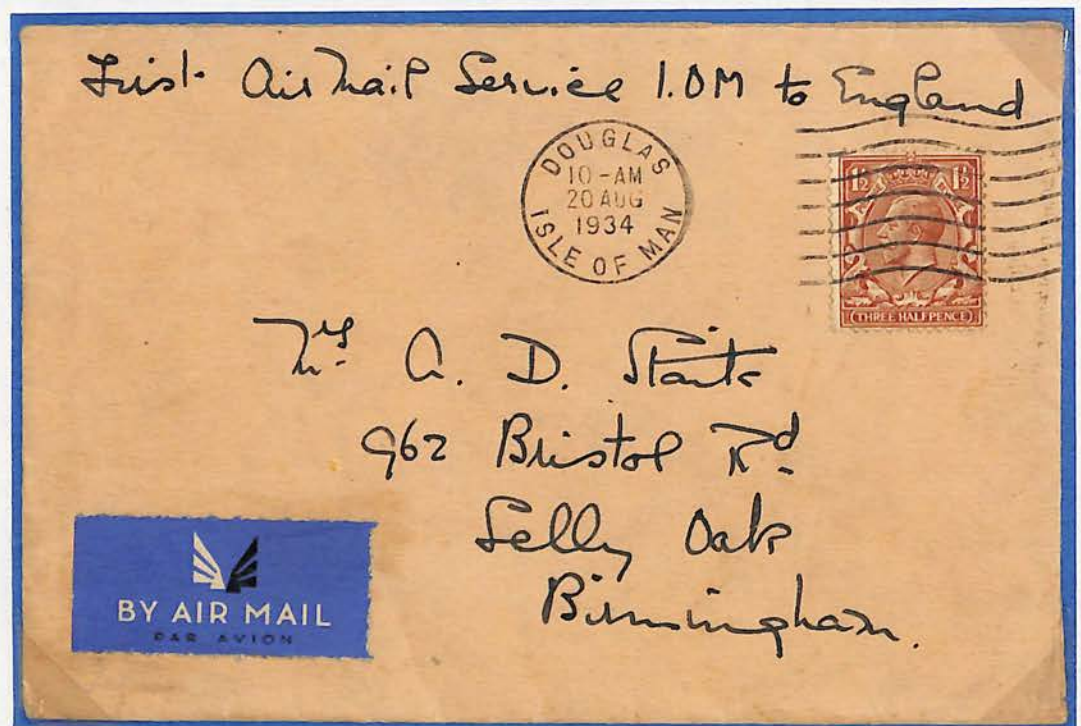 First Air Mail Service I.OM to England
DOUGLAS
10-AM
20 AUG
1934
ISLE OF MAN
1½ 1½
THREE HALFPENCE
Mrs A. D.
962 Bristol Rd
Selly Oak
Birmingham.
BY AIR MAIL
PAR AVION